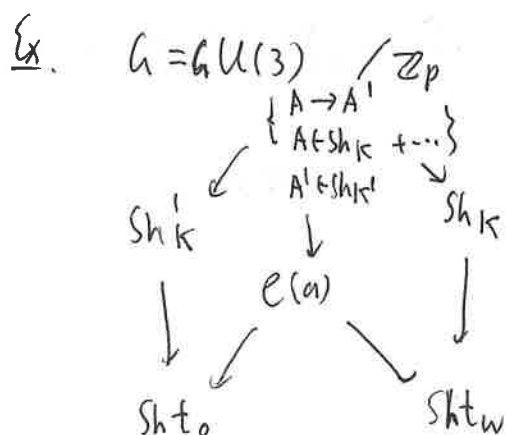 Ex. G = GU(3) / ℤp
{ A → A'
A ∈ Sh_K + ... }
A' ∈ Sh_K'
Sh'_K Sh_K
C(a)
Sht_0 Sht_w